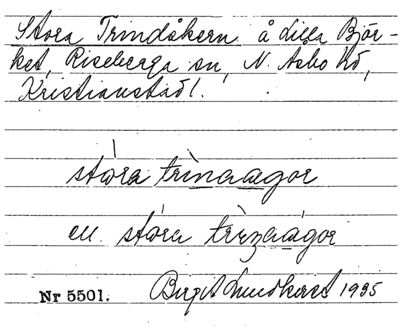 Stora Trindåkern å Lilla Björ-
ket, Riseberga sn, N. Åsbo hd,
Kristianstad l.
stòra trìnaagor
ell. stóra trìzaágor
Nr 5501. Birgit Lundkvist 1935